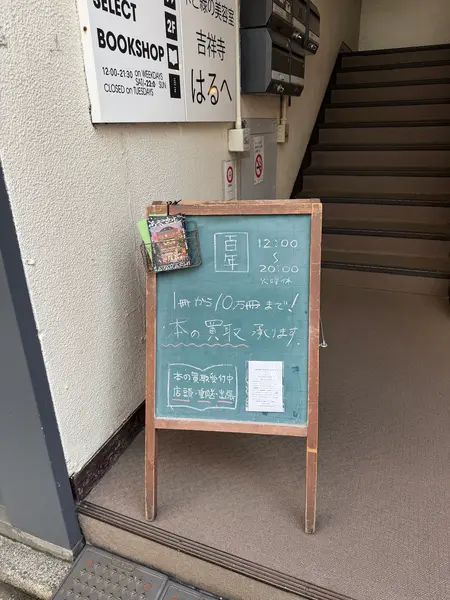 SELECT
BOOKSHOP
12:00-21:30 on WEEKDAYS
CLOSED on TUESDAYS
2F
の美容室
吉祥寺
はるへ
百年
12:00
～
20:00
火曜休
1冊から10万冊まで!
本の買取 承ります。
本の買取受付中
店頭・郵送・出張